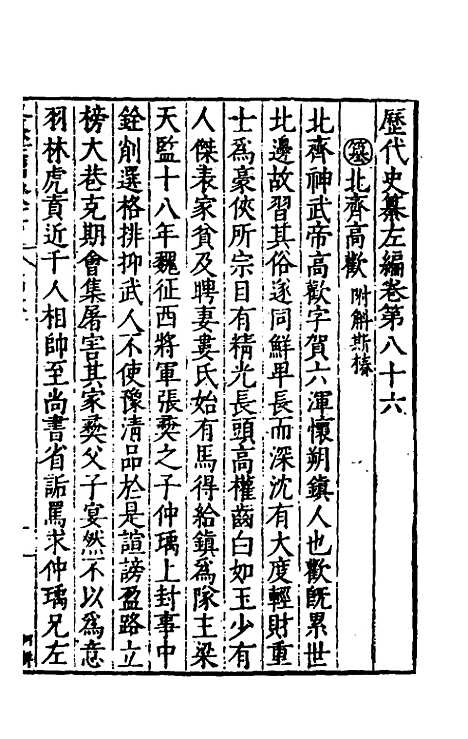 歷代史纂左編卷第八十六
簒北齊高歡附斛斯椿
北齊神武帝高歡字賀六渾懷朔鎮人也歡旣累世
北邊故習其俗遂同鮮卑長而深沈有大度輕財重
士爲豪俠所宗目有精光長頭高權齒白如玉少有
人傑表家貧及聘妻婁氏始有馬得給鎮爲隊主梁
天監十八年魏征西將軍張彛之子仲瑀上封事中
銓削選格排抑武人不使豫清品於是諠謗盈路立
榜大巷克期會集屠害其家彛父子宴然不以爲意
羽林虎賁近千人相帥至尚書省詬罵求仲瑀兄左